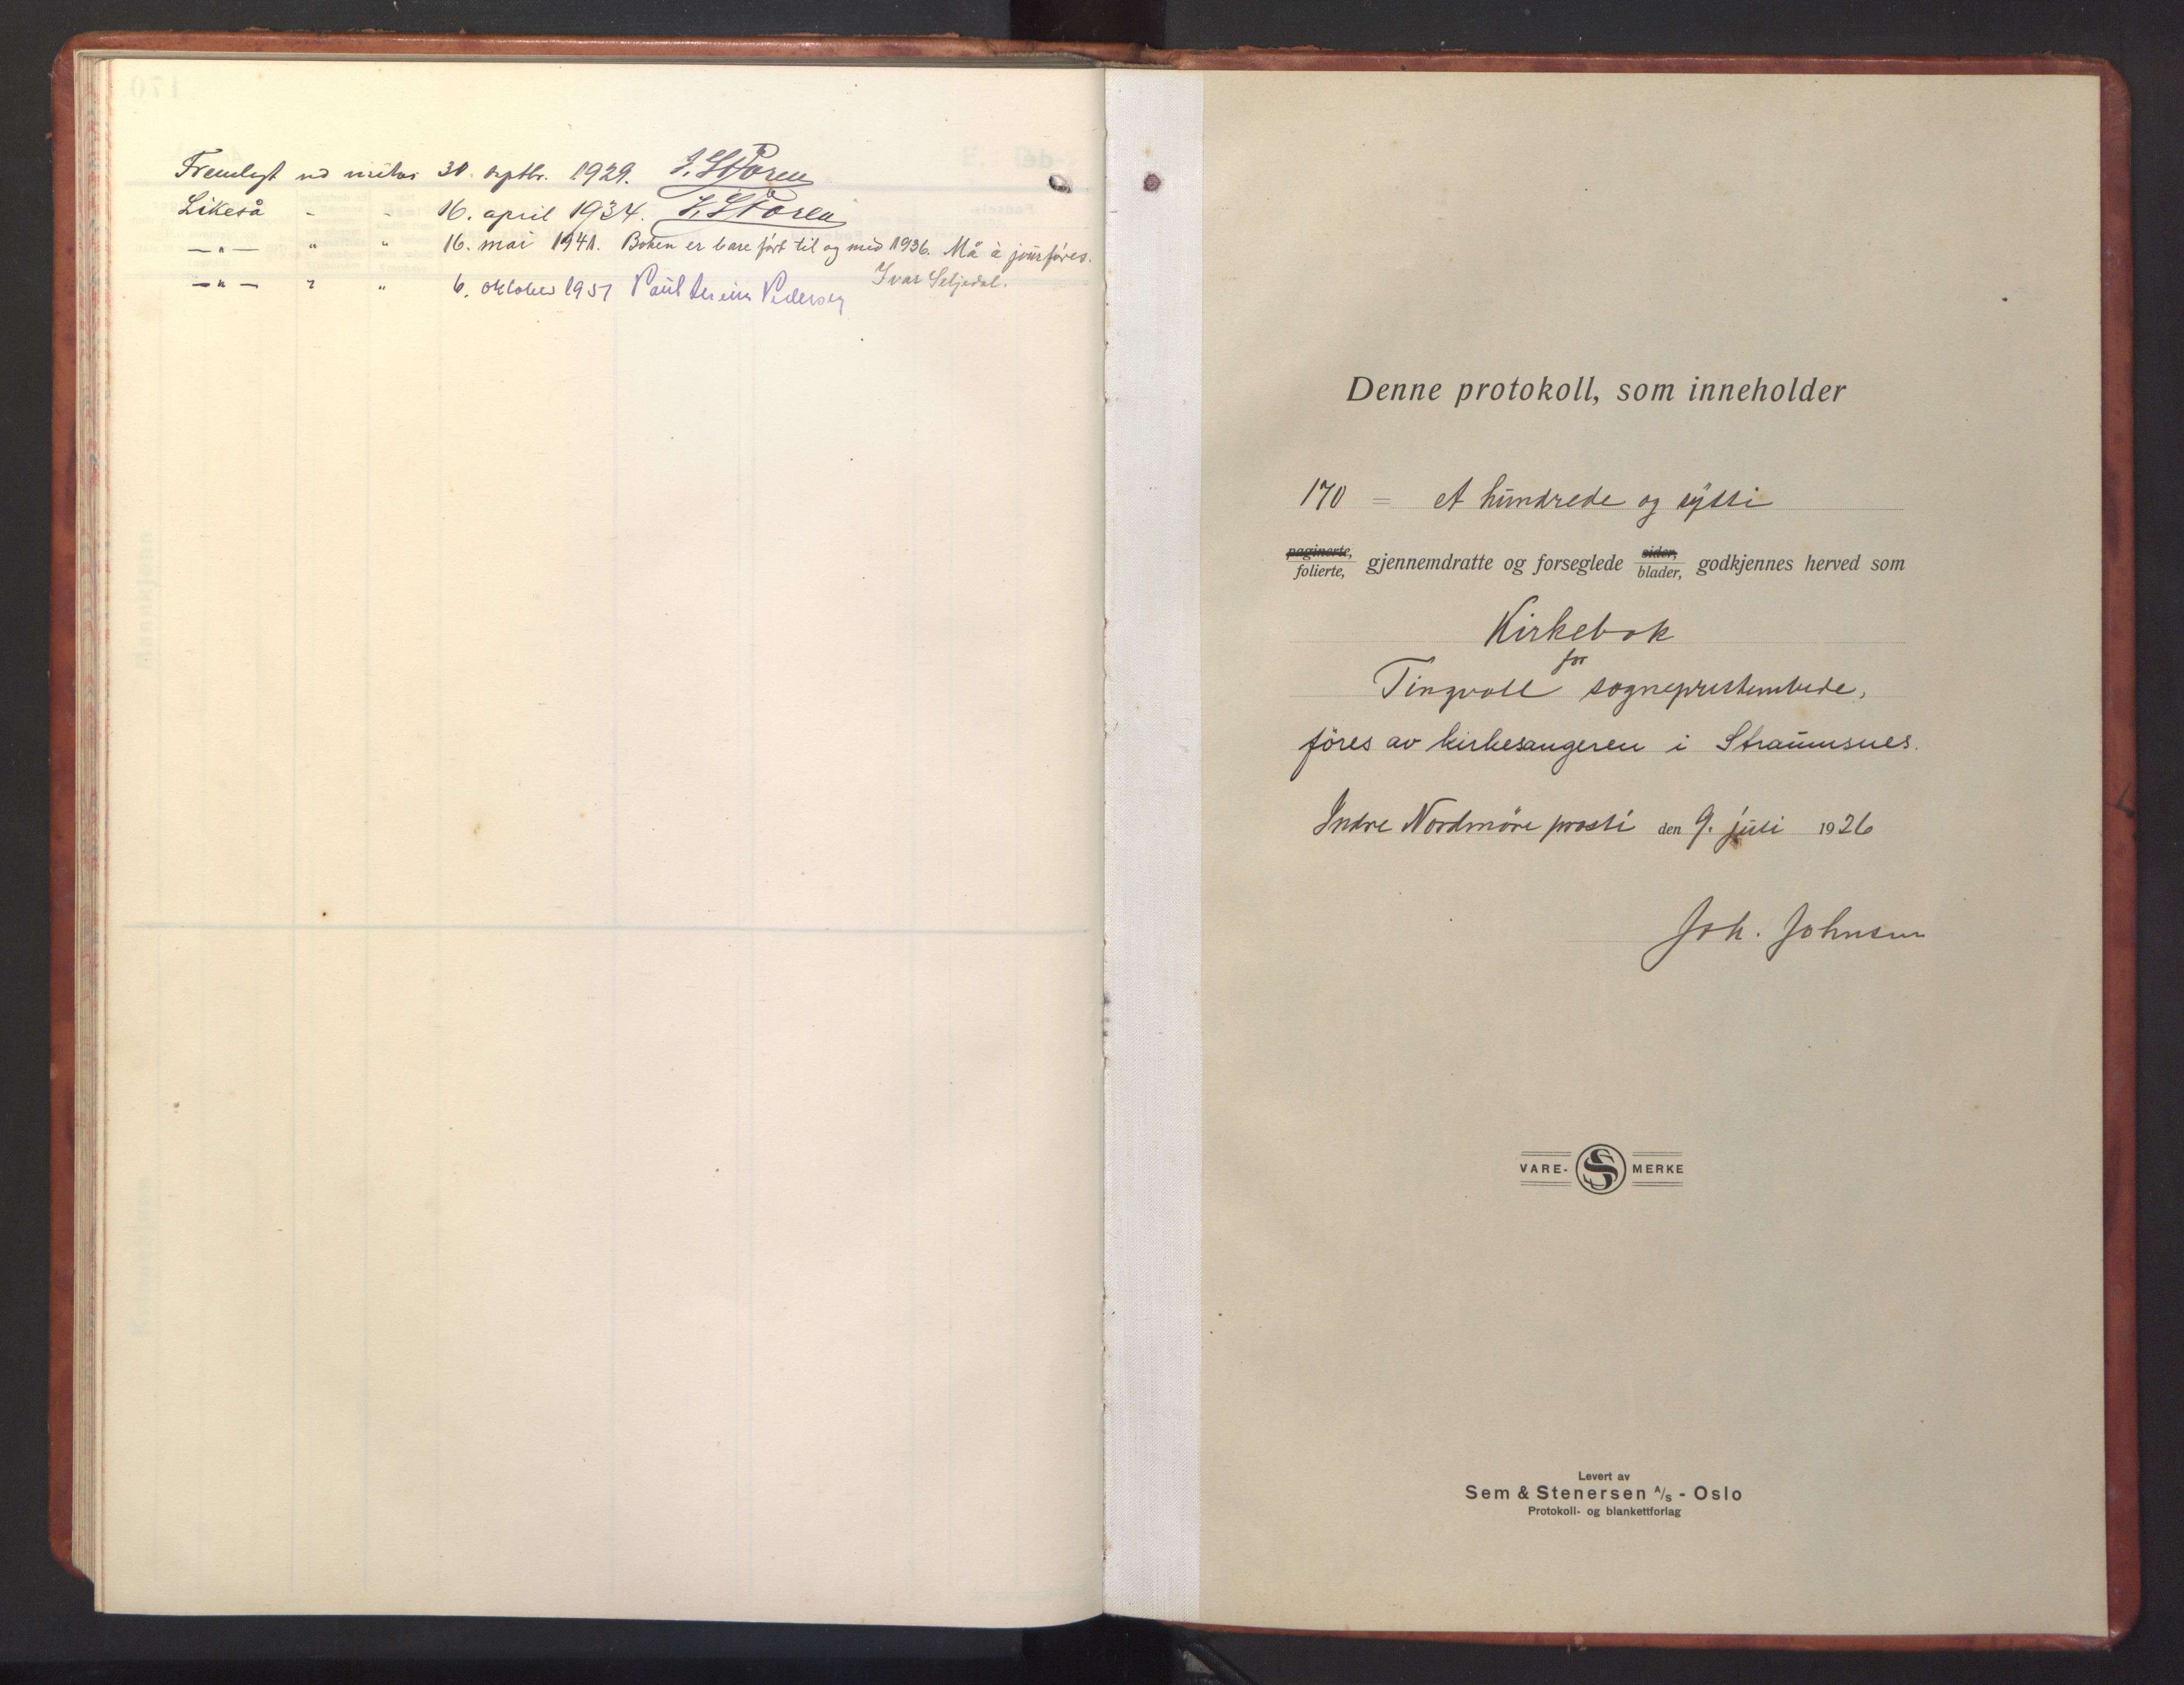 Fremlagt ved visitas 30. septbr. 1929. J. Støren
Likeså - - 16. april 1934. J. Støren
— " — " " 16. mai 1941. Boken er bare ført til og med 1936. Må à jour føres.
Ivar Seljedal.
— " — " " 6. oktober 1951 Pedersen
Denne protokoll, som inneholder
170 = et hundrede og sytti
paginerte, folierte, gjennemdratte og forseglede sider, blader, godkjennes herved som
Kirkebok
for
Tingvoll sogneprestembede,
föres av kirkesangeren i Straumsnes.
Indre Nordmöre prosti den 9. juli 1926
Joh. Johnsen
VARE- S MERKE
Levert av
Sem & Stenersen A/S - Oslo
Protokoll- og blankettforlag